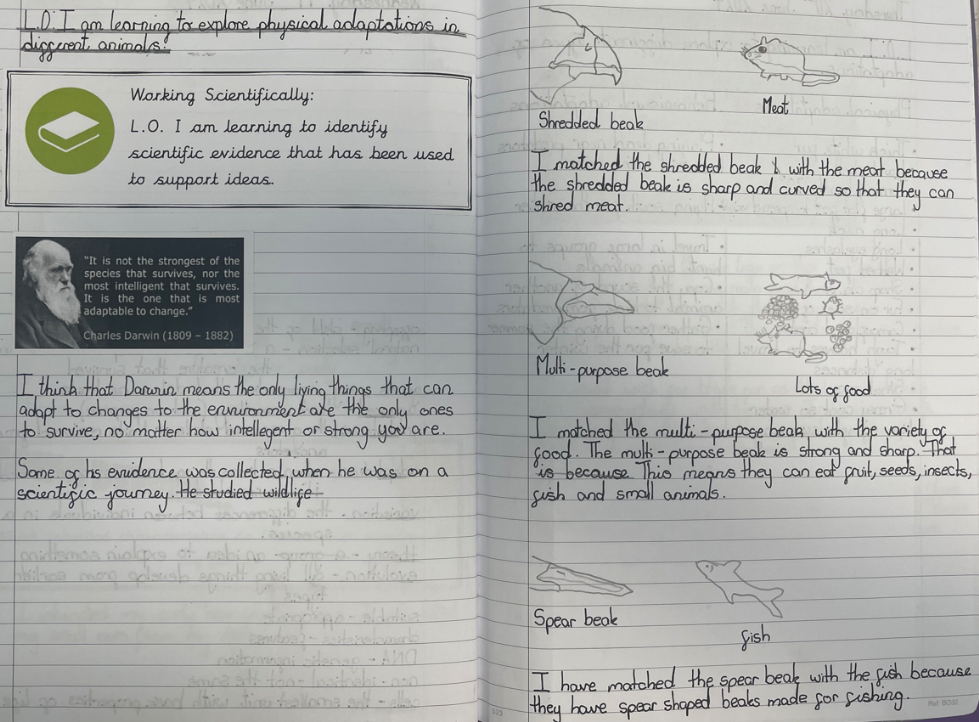 L.O: I am learning to explore physical adaptations in
different animals.
Working Scientifically:
L.O. I am learning to identify
scientific evidence that has been used
to support ideas.
"It is not the strongest of the
species that survives, nor the
most intelligent that survives.
It is the one that is most
adaptable to change."
Charles Darwin (1809 – 1882)
I think that Darwin means the only living things that can
adapt to changes to the environment are the only ones
to survive, no matter how intellegent or strong you are.
Some of his evidence was collected when he was on a
scientific journey. He studied wildlife
Shredded beak
Meat
I matched the shredded beak with the meat because
the shredded beak is sharp and curved so that they can
shred meat.
Multi-purpose beak
Lots of food
I matched the multi-purpose beak with the variety of
food. The multi-purpose beak is strong and sharp. That
is because This means they can eat fruit, seeds, insects,
fish and small animals.
Spear beak
fish
I have matched the spear beak with the fish because
they have spear shaped beaks made for fishing.